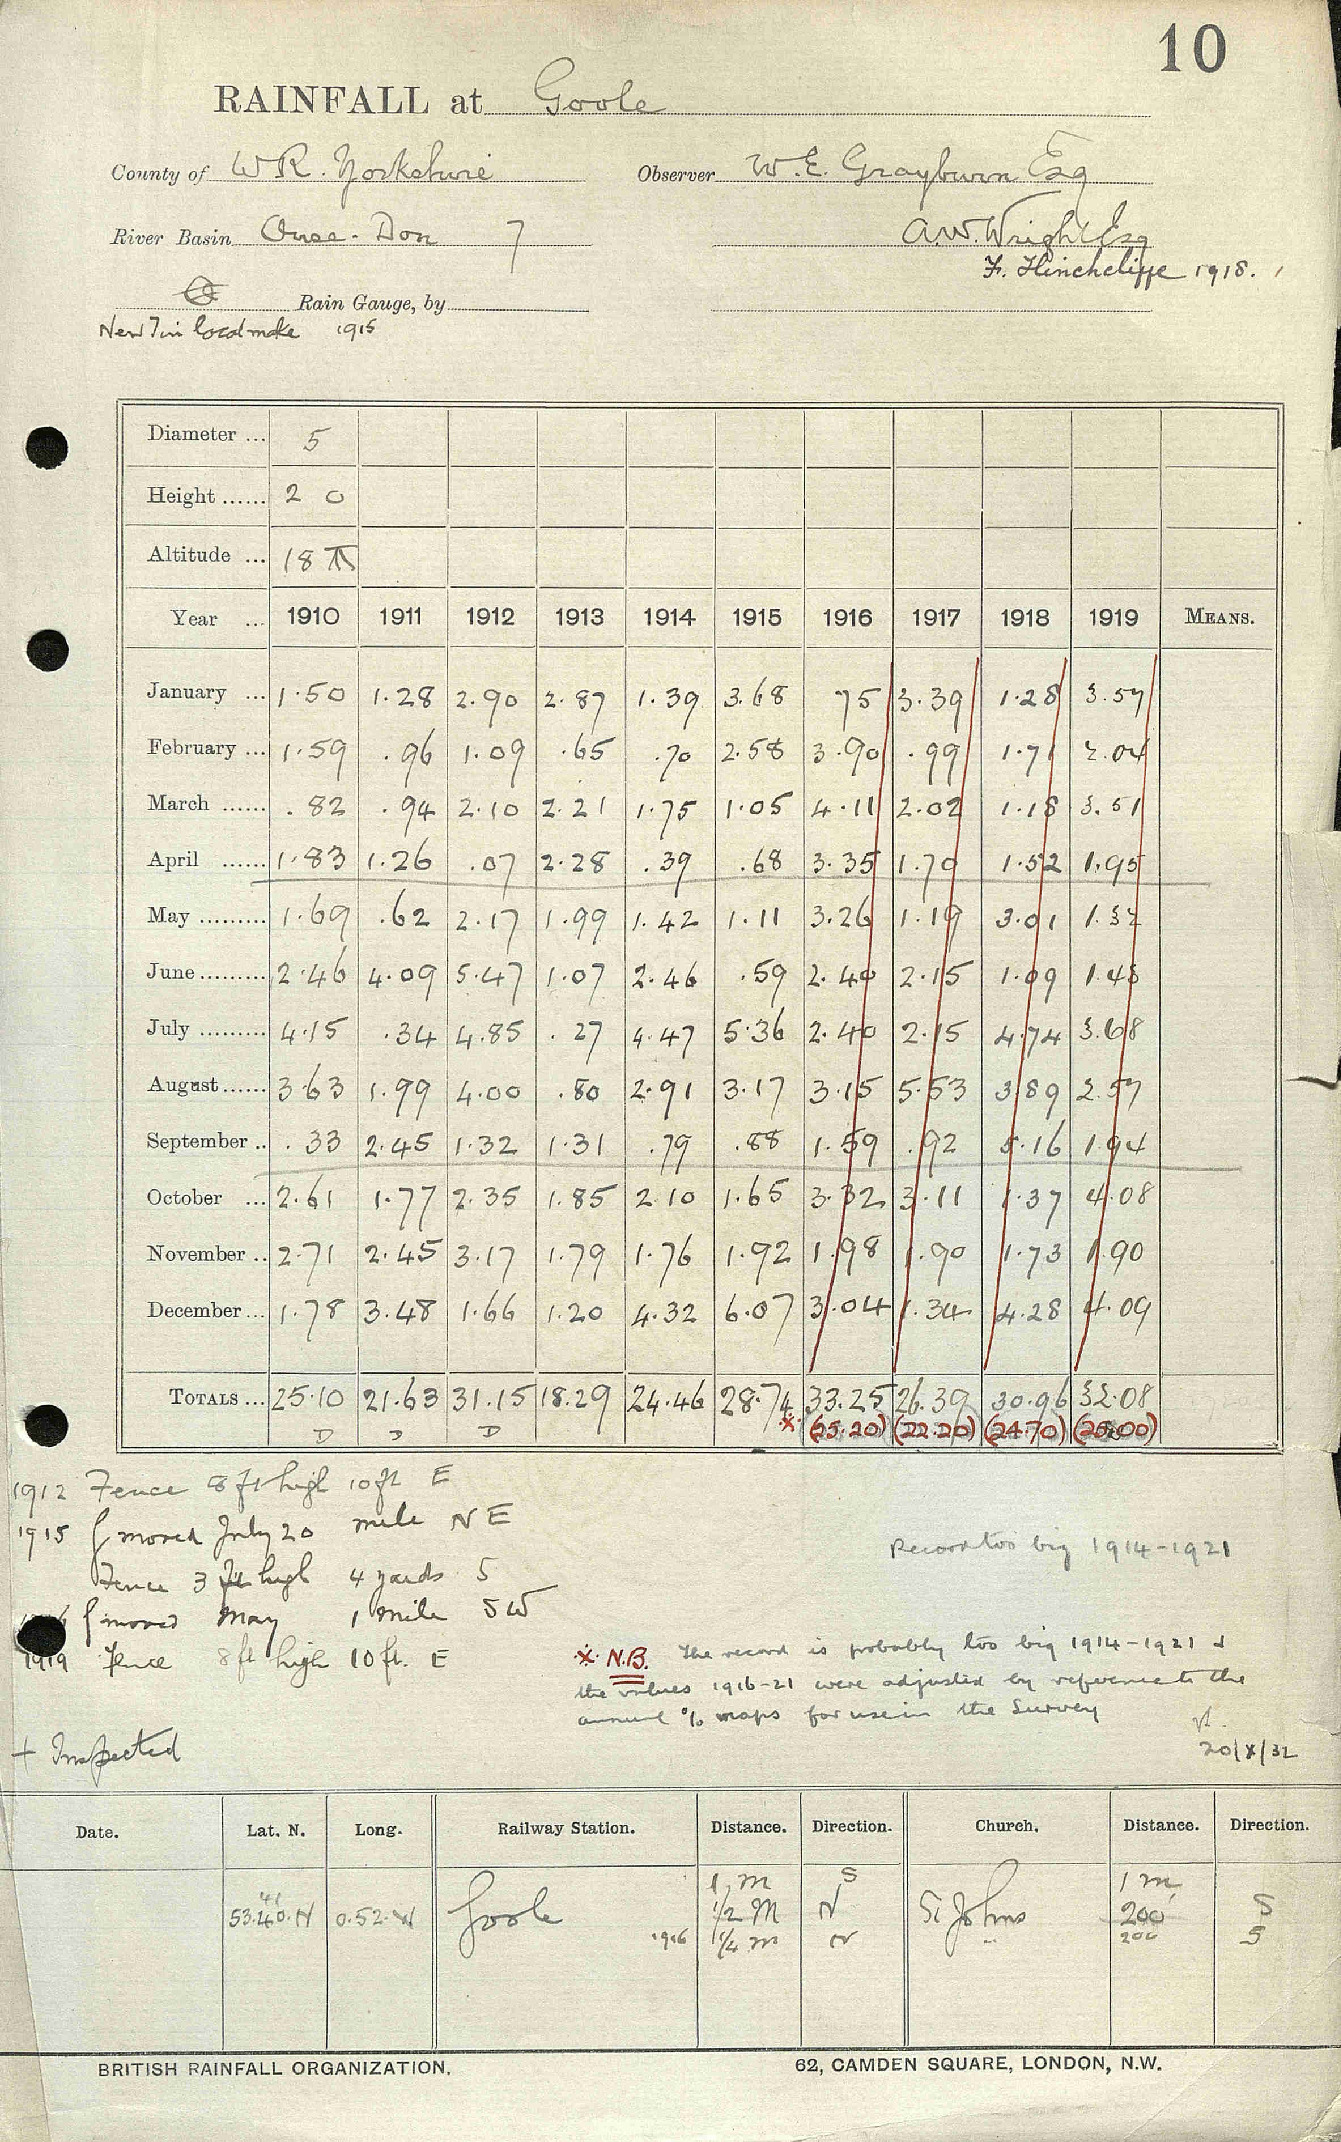 10
RAINFALL at Goole
County of W R. Yorkshire Observer W. E. Grayburn Esq
River Basin Ouse - Don 7 A.W. Wright Esq
F. Hinchcliffe 1918.
Rain Gauge, by
New 7in local make 1915
Diameter ... 5
Height ...... 2 0
Altitude ... 18
Year ... 1910 1911 1912 1913 1914 1915 1916 1917 1918 1919 MEANS.
January ... 1.50 1.28 2.90 2.87 1.39 3.68 75 3.39 1.28 3.57
February ... 1.59 .96 1.09 .65 .70 2.58 3.90 .99 1.71 2.04
March ...... .82 .94 2.10 2.21 1.75 1.05 4.11 2.02 1.18 3.51
April ...... 1.83 1.26 .07 2.28 .39 .68 3.35 1.70 1.52 1.95
May ......... 1.69 .62 2.17 1.99 1.42 1.11 3.26 1.19 3.01 1.32
June ......... 2.46 4.09 5.47 1.07 2.46 .59 2.40 2.15 1.09 1.43
July ......... 4.15 .34 4.85 .27 4.47 5.36 2.40 2.15 4.74 3.68
August ...... 3.63 1.99 4.00 .80 2.91 3.17 3.15 5.53 3.89 2.57
September .. .33 2.45 1.32 1.31 .79 .88 1.59 .92 5.16 1.94
October ... 2.61 1.77 2.35 1.85 2.10 1.65 3.32 3.11 1.37 4.08
November .. 2.71 2.45 3.17 1.79 1.76 1.92 1.98 1.90 1.73 1.90
December ... 1.78 3.48 1.66 1.20 4.32 6.07 3.04 1.34 4.28 4.09
TOTALS ... 25.10 21.63 31.15 18.29 24.46 28.74 33.25 26.39 30.96 32.08
D D D * (25.20) (22.20) (24.70) (25.00)
1912 Fence 8 ft high 10 ft E
1915 { moved July 20 mile N E
Record too big 1914-1921
Fence 3 ft high 4 yards S
{ moved May 1 mile SW
1919 Fence 8 ft high 10 ft. E
* N.B. The record is probably too big 1914-1921 &
the values 1916-21 were adjusted by reference to the
annual % maps for use in the Survey
20/X/32
+ Inspected
Date. Lat. N. Long. Railway Station. Distance. Direction. Church. Distance. Direction.
1 m S 1 m
41
53.40.N 0.52.W Goole 1/2 M N St Johns 200 S
1916 1/4 m N 200 S
BRITISH RAINFALL ORGANIZATION. 62, CAMDEN SQUARE, LONDON, N.W.